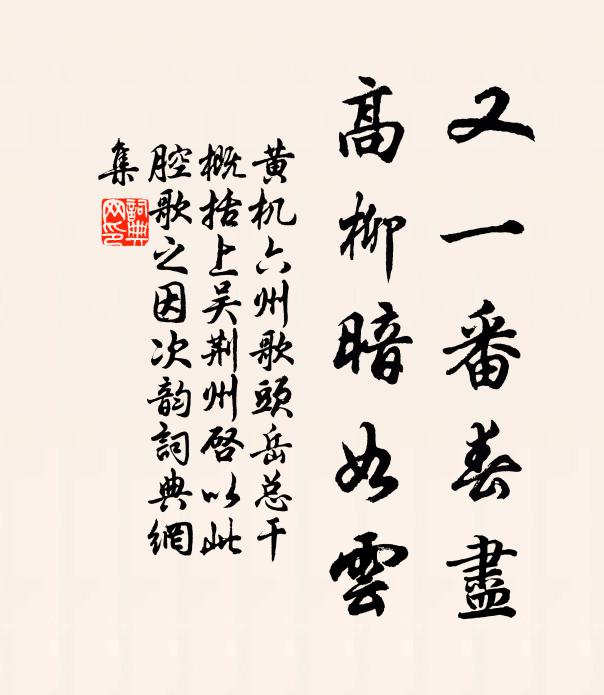 又一番春盡
高柳暗如雲
黄机六州歌頭岳总干
概括上吴荆州啓以此
腔歌之因次韵詞典網
集
詞典網印